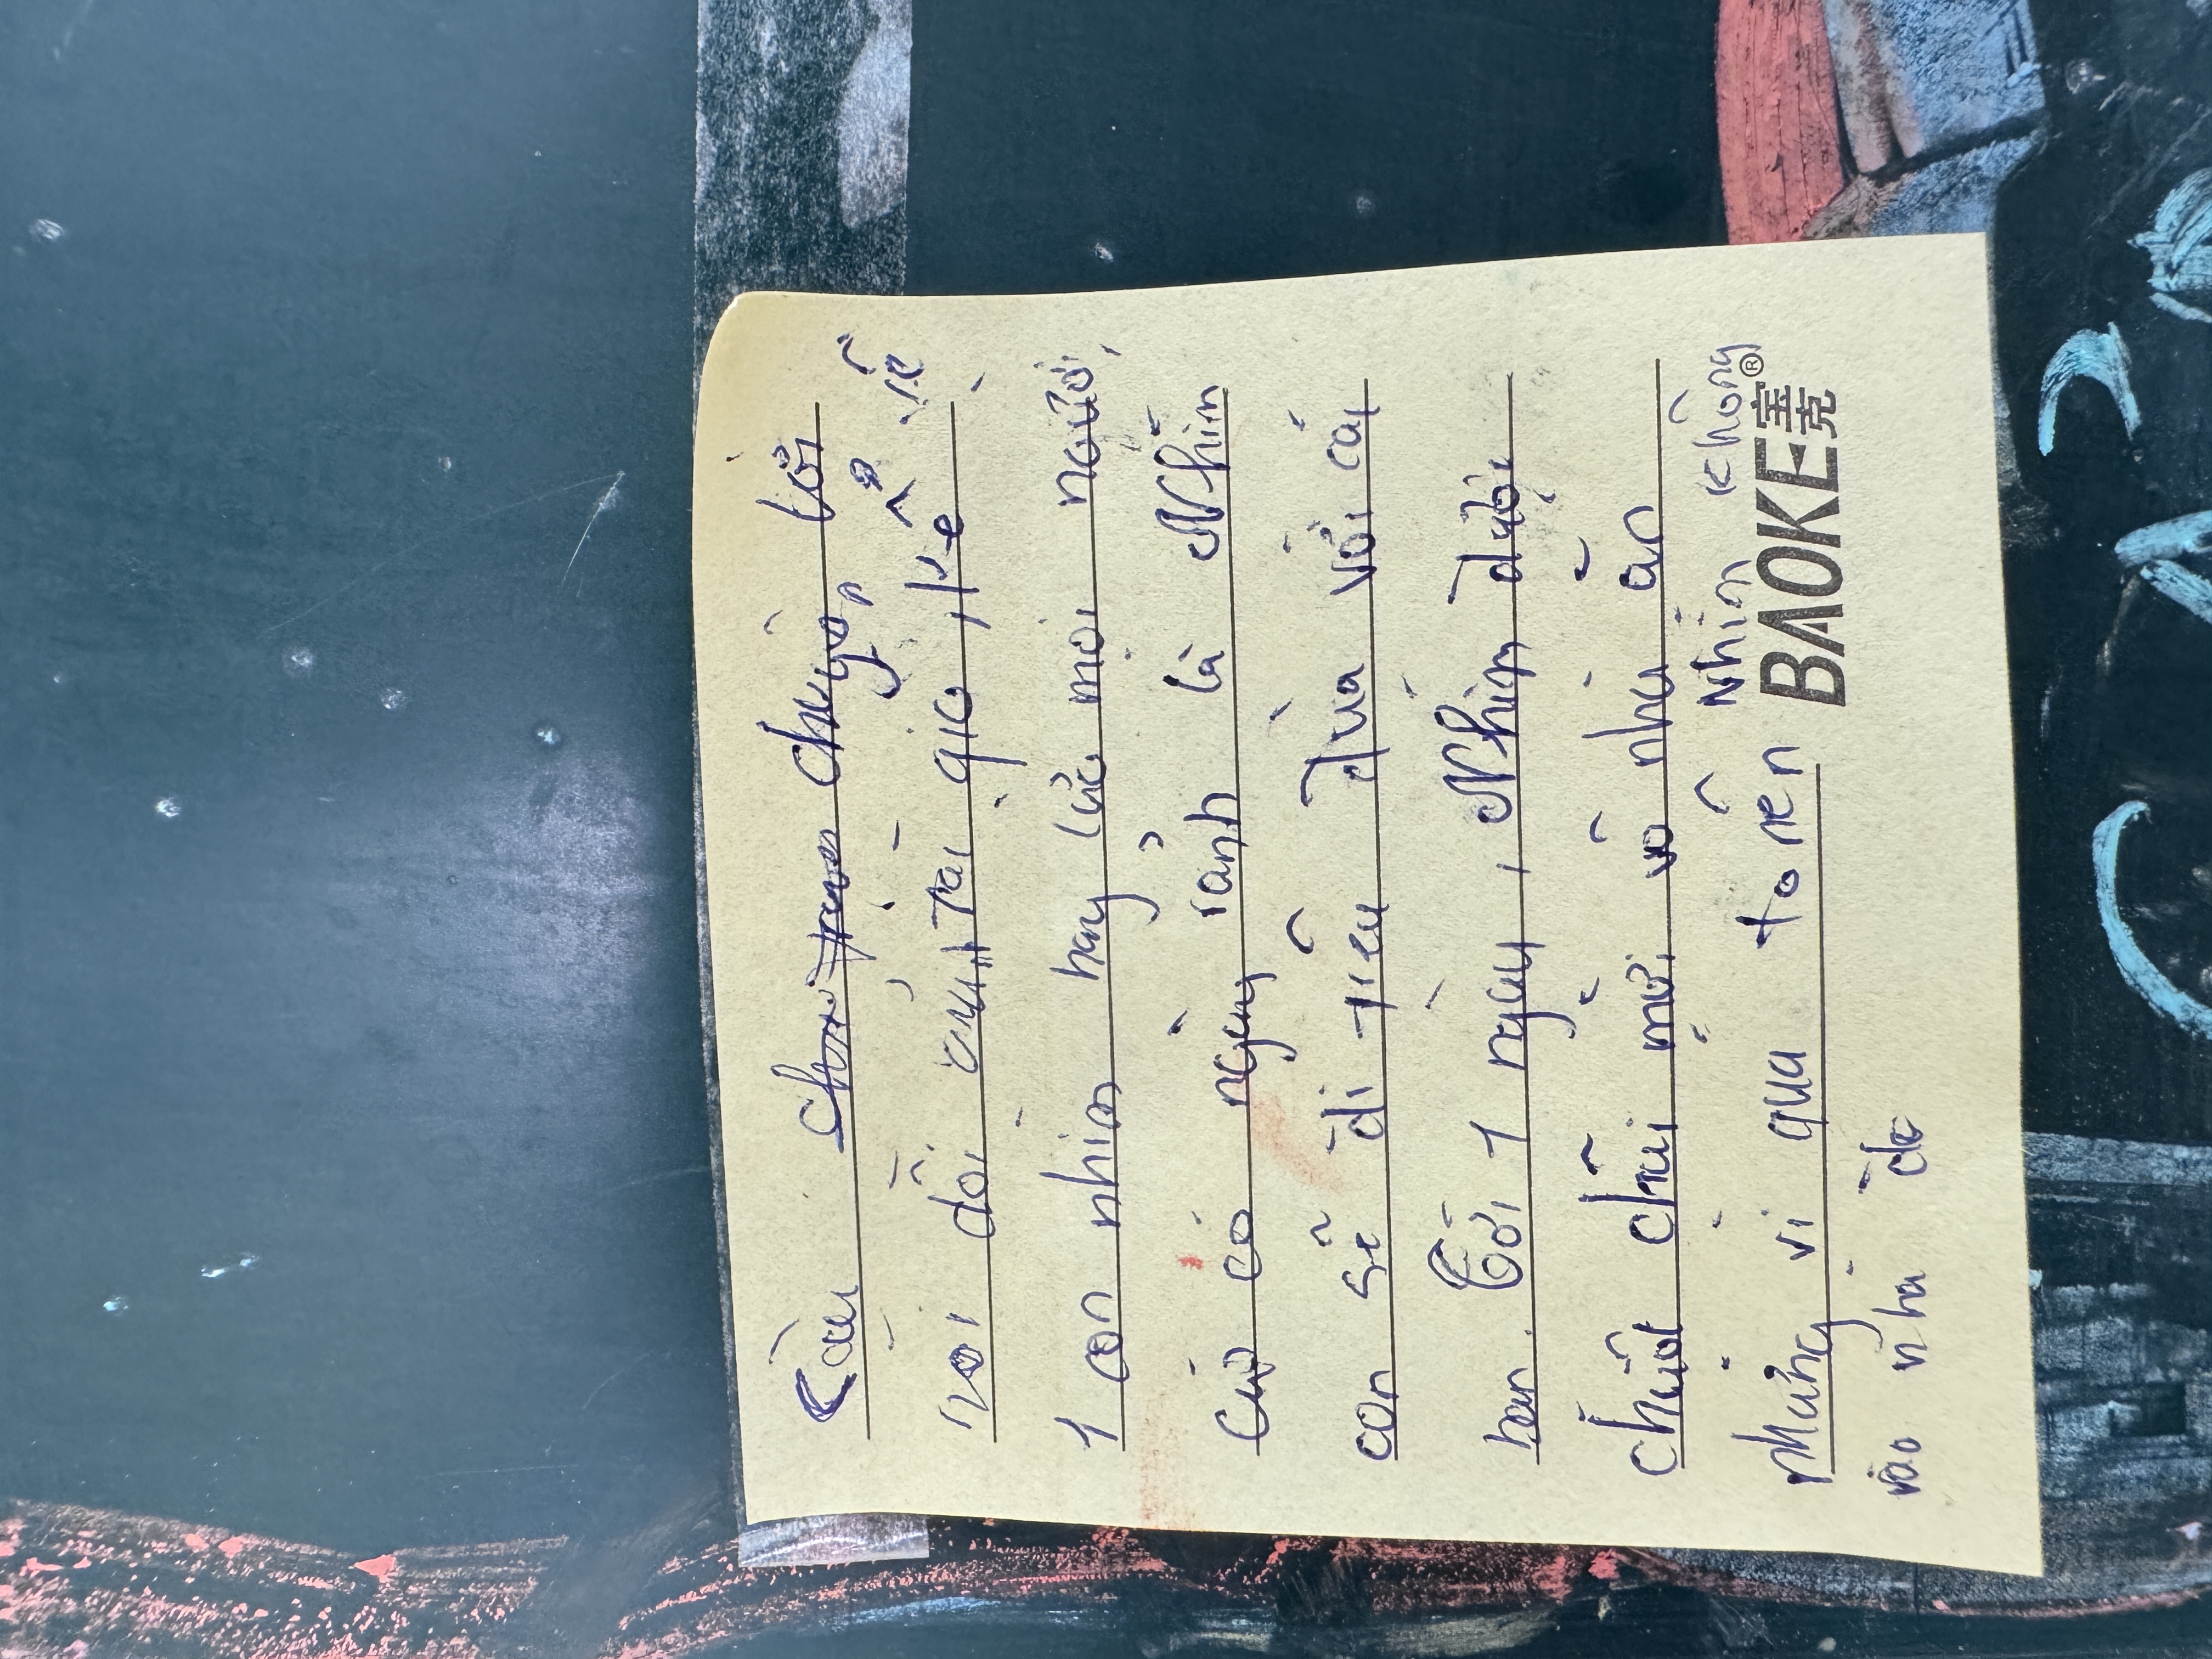 Câu chuyện bởi
nói dối của tác giả, kể về
1 con nhím hay lừa mọi người,
Cứ có ngày rảnh là Nhím
con sẽ đi trêu đùa với cái
han. Tới 1 ngày, Nhím dưới
chuột chũi mời vô nhà ăn
Nhưng vì quá to nên Nhím không
vào nhà dc
BAOKE宝克®